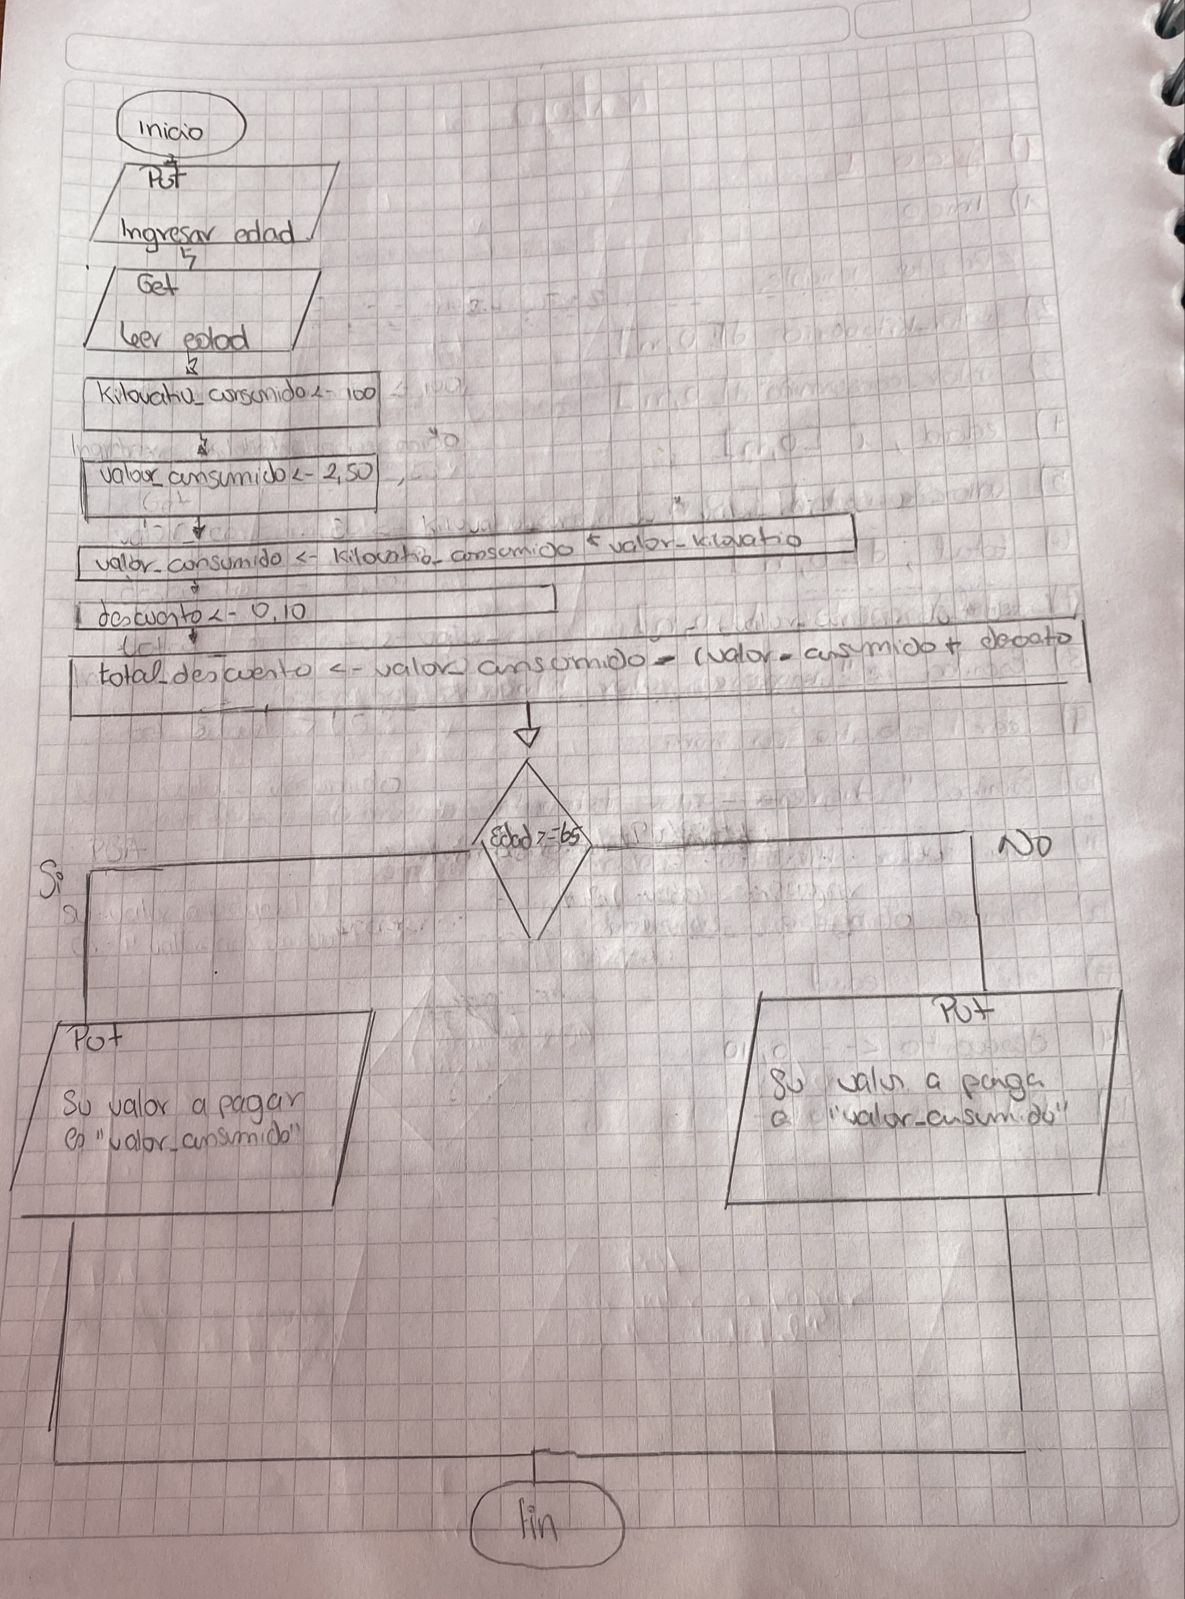 Inicio
Put
Ingresar edad
Get
leer edad
Kilovatio_consumido <- 100
valor_consumido <- 2,50
valor_consumido <- kilovatio_consumido * valor_kilovatio
descuento <- 0,10
total_descuento <- valor_consumido - (valor_consumido *
Edad >= 65
Si
No
Put
Su valor a pagar
es "valor_consumido"
Put
Su valor a paga
"valor_consumido"
fin